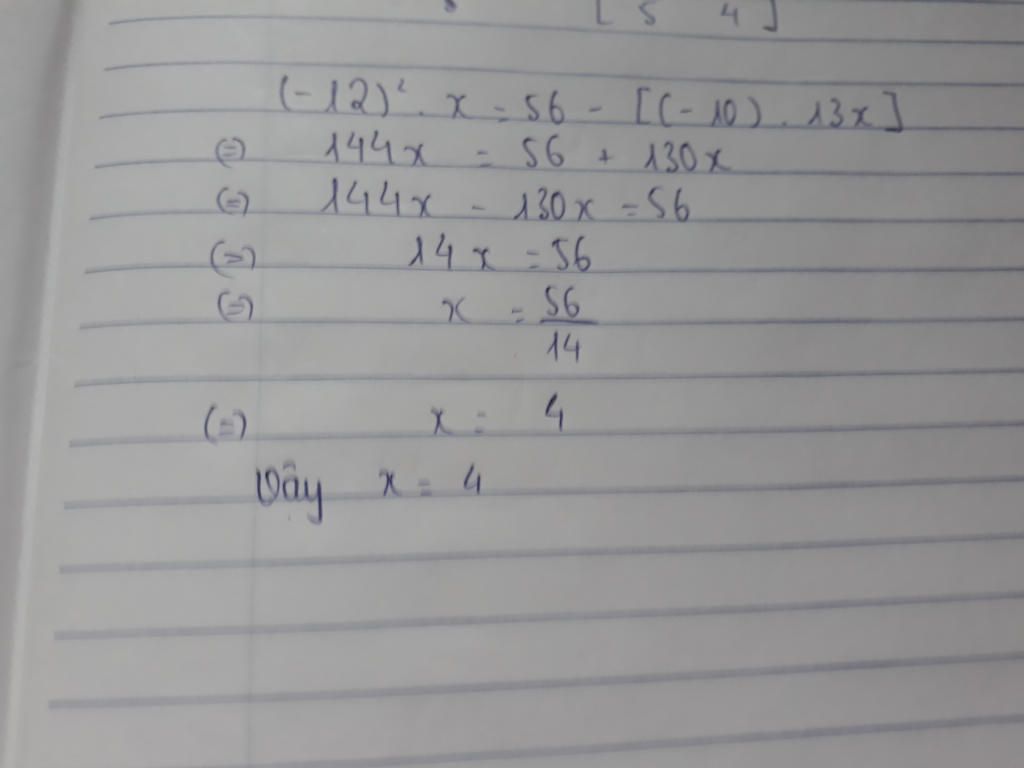 [ 5 4 ]
(-12)² . x = 56 - [(-10) . 13x]
(=) 144x = 56 + 130x
(=) 144x - 130x = 56
(=) 14x = 56
(=) x = 56/14
(=) x = 4
Vậy x = 4